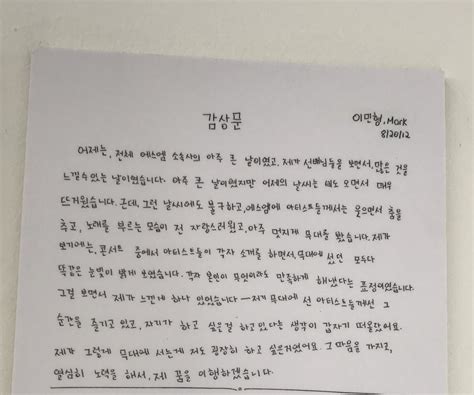 감상문
이민형, Mark
8/20/12
어제는, 전체 에스엠 소속사의 아주 큰 날이였고, 제가 선배님들을 보면서, 많은 것을
느낄수있는 날이였습니다. 아주 큰 날이였지만 어제의 날씨는 비도 오면서 매우
뜨거웠습니다. 근데, 그런 날씨에도 불구하고, 에스엠에 아티스트들께서는 웃으면서 춤을
추고, 노래를 부르는 모습이 전 자랑스러웠고, 아주 멋지게 무대를 봤습니다. 제가
보기에는, 콘서트 중에서 아티스트들이 각자 소개를 하면서, 무대에 섰던 모두다
똑같은 눈빛이 밝게 보였습니다. 각자 본인이 무엇이라도 만족하게 해냈다는 표정이였습니다.
그걸 보면서 제가 느낀게 하나 있었습니다 — 저기 무대에 선 아티스트들께선 그
순간을 즐기고 있고, 자기가 하고 싶은걸 하고있다는 생각이 갑자기 떠올랐어요.
제가 그렇게 무대에 서는게 저도 굉장히 하고 싶은거였어요. 그 마음을 가지고,
열심히 노력을 해서, 제 꿈을 이행하겠습니다.